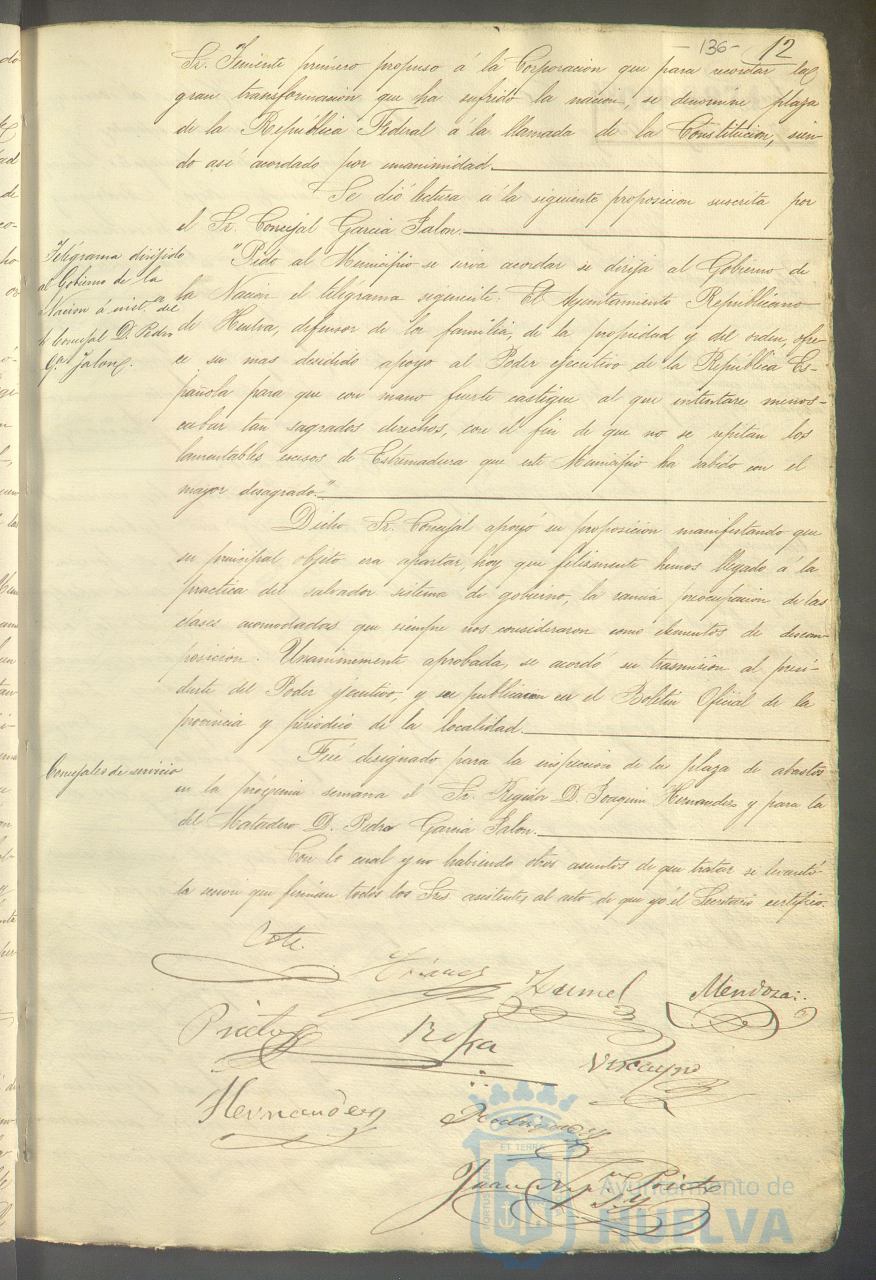 - 136 - 12
Sr. Teniente primero propuso á la Corporacion que para recordar la
gran transformacion que ha sufrido la nacion, se denomine plaza
de la República Federal á la llamada de la Constitucion, sien-
do así acordado por unanimidad.
Se dió lectura á la siguiente proposicion suscrita por
el Sr. Concejal Garcia Jalon.
Telégrama dirijido
al Gobierno de la
Nacion á inst.ª del
Concejal D. Pedro
G.ª Jalon.
"Pido al Municipio se sirva acordar se dirija al Gobierno de
la Nacion el telégrama siguiente: El Ayuntamiento Republicano
de Huelva, defensor de la familia, de la propiedad y del orden, ofre-
ce su mas decidido apoyo al Poder ejecutivo de la República Es-
pañola para que con mano fuerte castigue al que intentare menos-
cabar tan sagrados derechos, con el fin de que no se repitan los
lamentables escesos de Estremadura que este Municipio ha sabido con el
mayor desagrado."
Dicho Sr. Concejal apoyó su proposicion manifestando que
su principal objeto era apartar, hoy que felizmente hemos llegado á la
practica del salvador sistema de gobierno, la rancia preocupacion de las
clases acomodadas que siempre nos consideraron como elementos de descom-
posicion. Unanimemente aprobada, se acordó su trasmision al presi-
dente del Poder ejecutivo, y su publicacion en el Boletin Oficial de la
provincia y periodico de la localidad.
Concejales de servicio
Fué designado para la inspeccion de la plaza de abastos
en la procsima semana el Sr. Regidor D. Joaquin Hernandez y para la
del Matadero D. Pedro Garcia Jalon.
Con lo cual y no habiendo otros asuntos de que tratar se levantó
la sesion que firman todos los Sres asistentes al acto de que yo el Secretario certifico.
Jimenez Zumel Mendoza
Prieto Vizcayno
Hernandez Rodriguez
Juan Prieto
ET TERRA
Ayuntamiento de
HUELVA